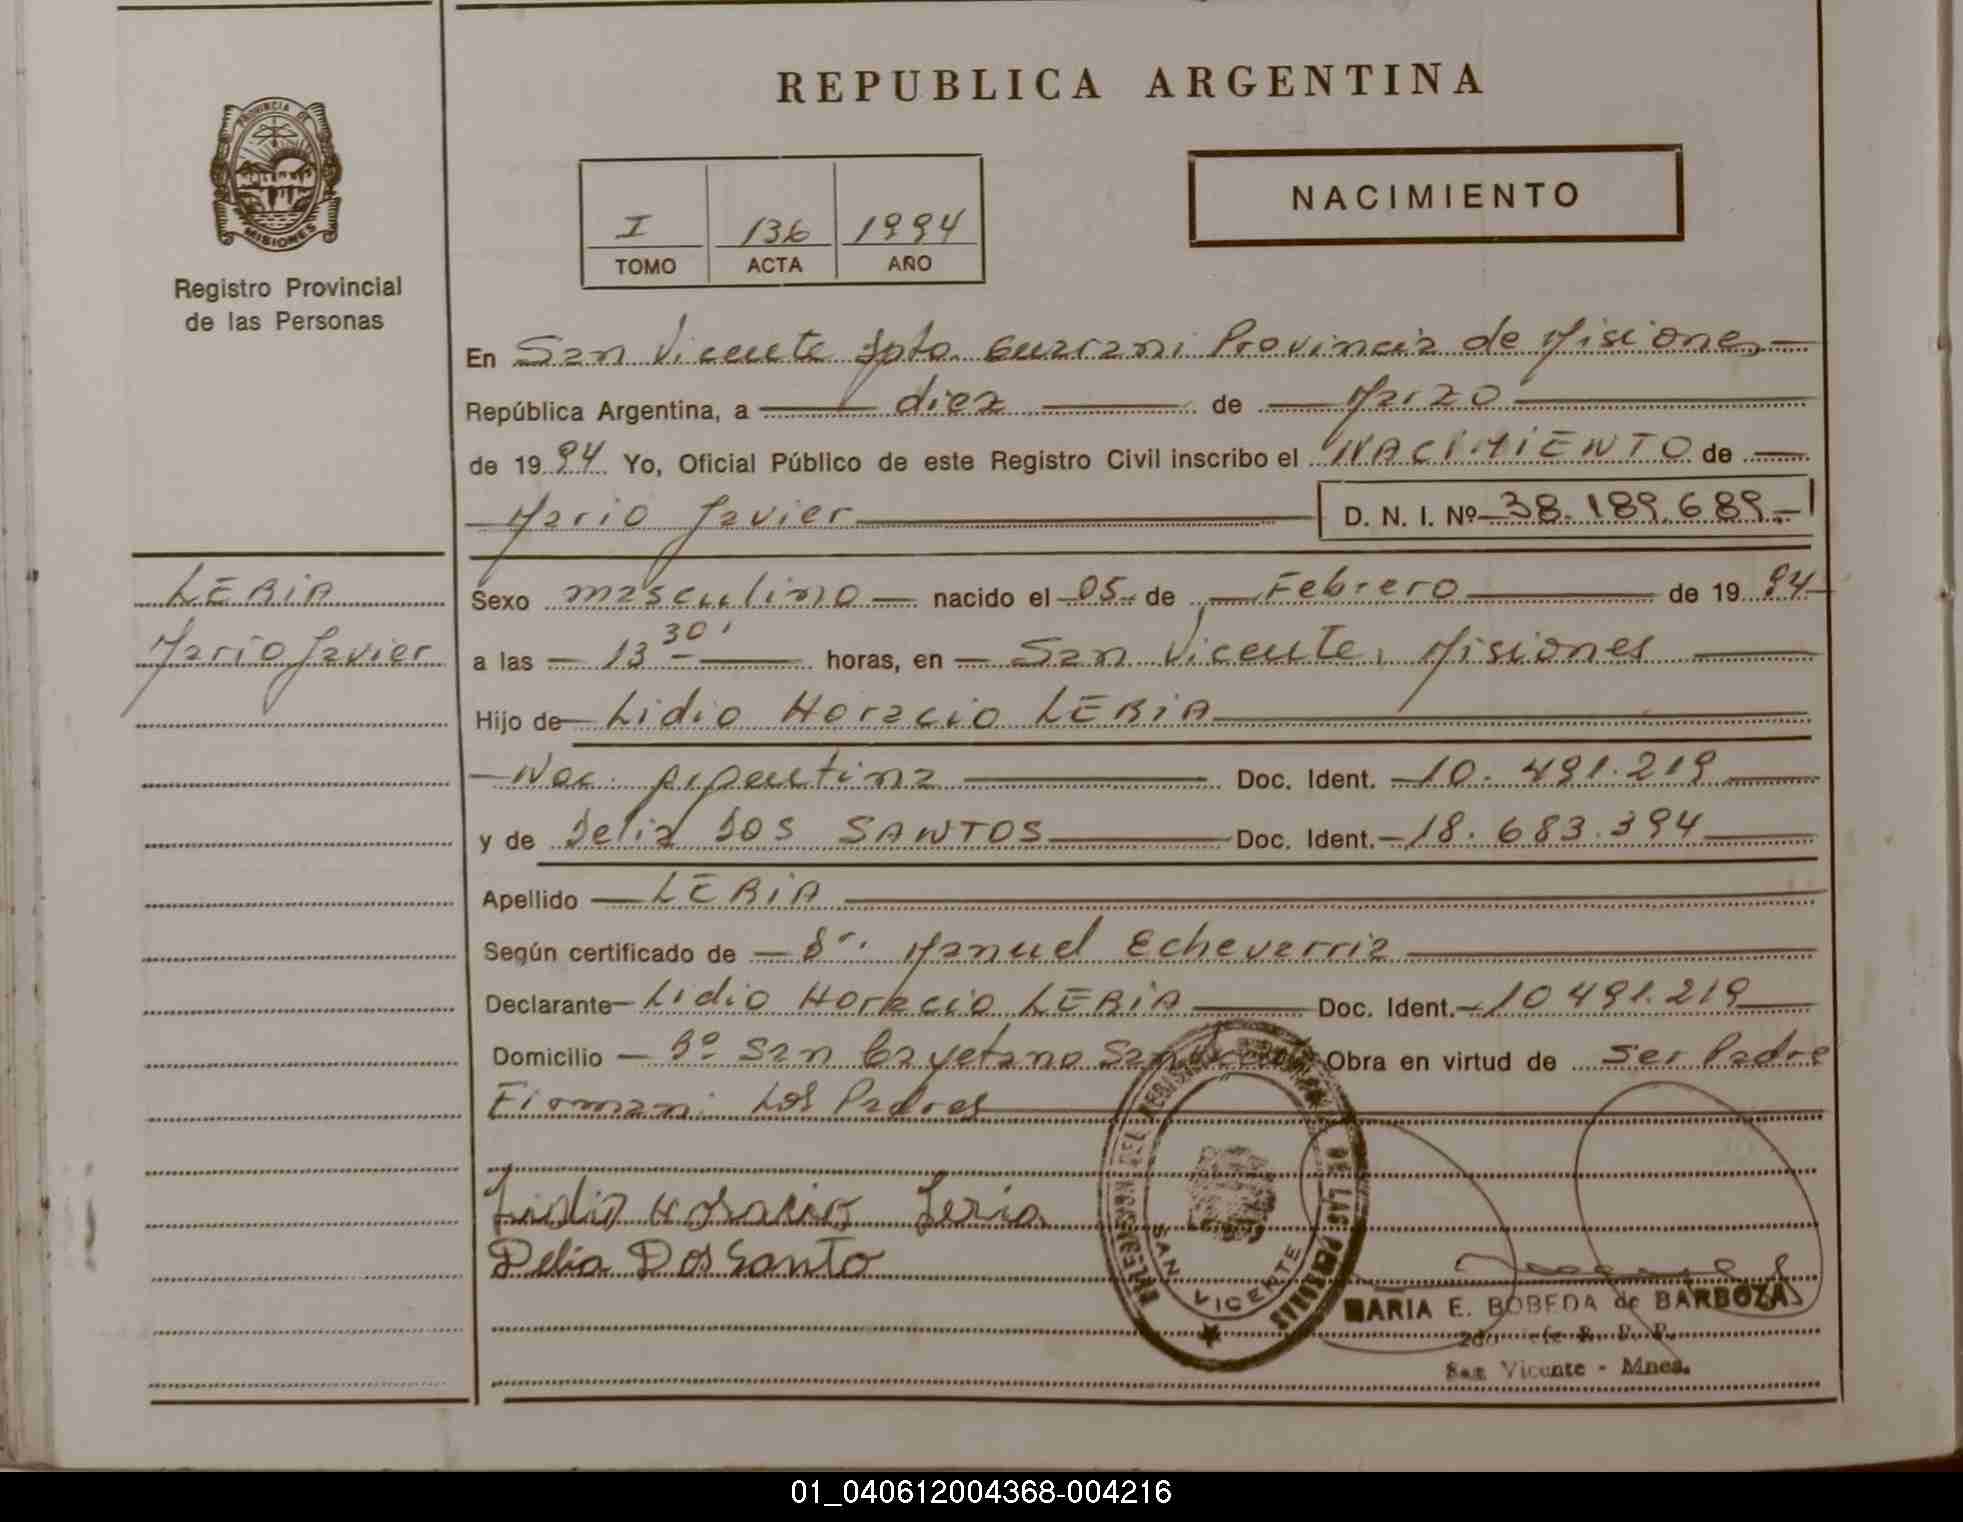 REPUBLICA ARGENTINA
PROVINCIA DE
MISIONES
Registro Provincial
de las Personas
NACIMIENTO
I 136 1994
TOMO ACTA AÑO
En San Vicente Dpto. Guarani Provincia de Misiones
República Argentina, a diez de Marzo
de 1994 Yo, Oficial Público de este Registro Civil inscribo el NACIMIENTO de
Mario Javier D. N. I. Nº 38.189.689.-
LERIA
Mario Javier
Sexo masculino nacido el 05 de Febrero de 1994
a las 13 30' horas, en San Vicente, Misiones
Hijo de Lidio Horacio LERIA
Nac. Argentina Doc. Ident. 10.491.219
y de Delia DOS SANTOS Doc. Ident. 18.683.394
Apellido LERIA
Según certificado de Dr. Manuel Echeverria
Declarante Lidio Horacio LERIA Doc. Ident. 10491.219
Domicilio Bº San Cayetano Obra en virtud de Ser Padre
Firman: Los Padres
Lidio Horacio Leria
Delia Dos Santo
DELEGACION DEL REGISTRO DE LAS PERSONAS
SAN VICENTE
MARIA E. BOBEDA de BARBOZA
San Vicente - Mnes.
01_040612004368-004216